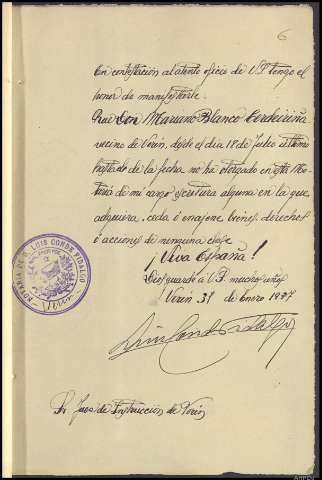 6
En contestación al atento oficio de V.S. tengo el
honor de manifestarle.
Que Don Mariano Blanco Cerdeiriña
vecino de Verín, desde el dia 18 de Julio último
hasta de la fecha no ha otorgado en esta No-
taria de mi cargo escritura alguna en la que
adquiera, ceda ó enajene bienes, derechos
ó acciones de ninguna clase
¡Viva España!
Dios guarde á V.S. muchos años
Verín 31 de Enero 1937
NOTARIA DE D. LUIS CONDE HIDALGO
Verín
Luis Conde Hidalgo
Sr Juez de Instrucción de Verín